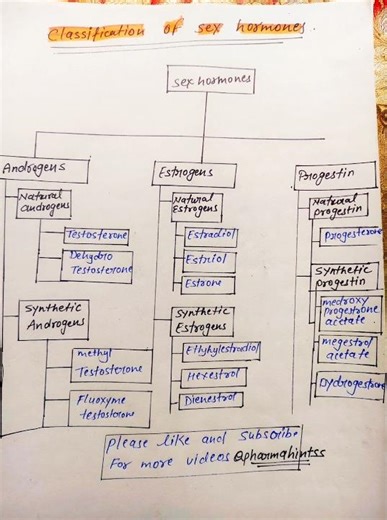 Classification of sex hormones.
sex hormones
Androgens
Natural
androgens
Testosterone
Dehydro
Testosterone
Synthetic
Androgens
methyl
Testosterone
Fluoxyme
testosterone
Estrogens
Natural
Estrogens
Estradiol
Estriol
Estrone
Synthetic
Estrogens
Ethyhylestradiol
Hexestrol
Dienestrol
Progestin
Natural
progestin
progesterone
Synthetic
progestin
medroxy
progestrone
acetate
megestrol
acetate
Dydrogestrone
please like and subscribe
For more videos @pharmahintss